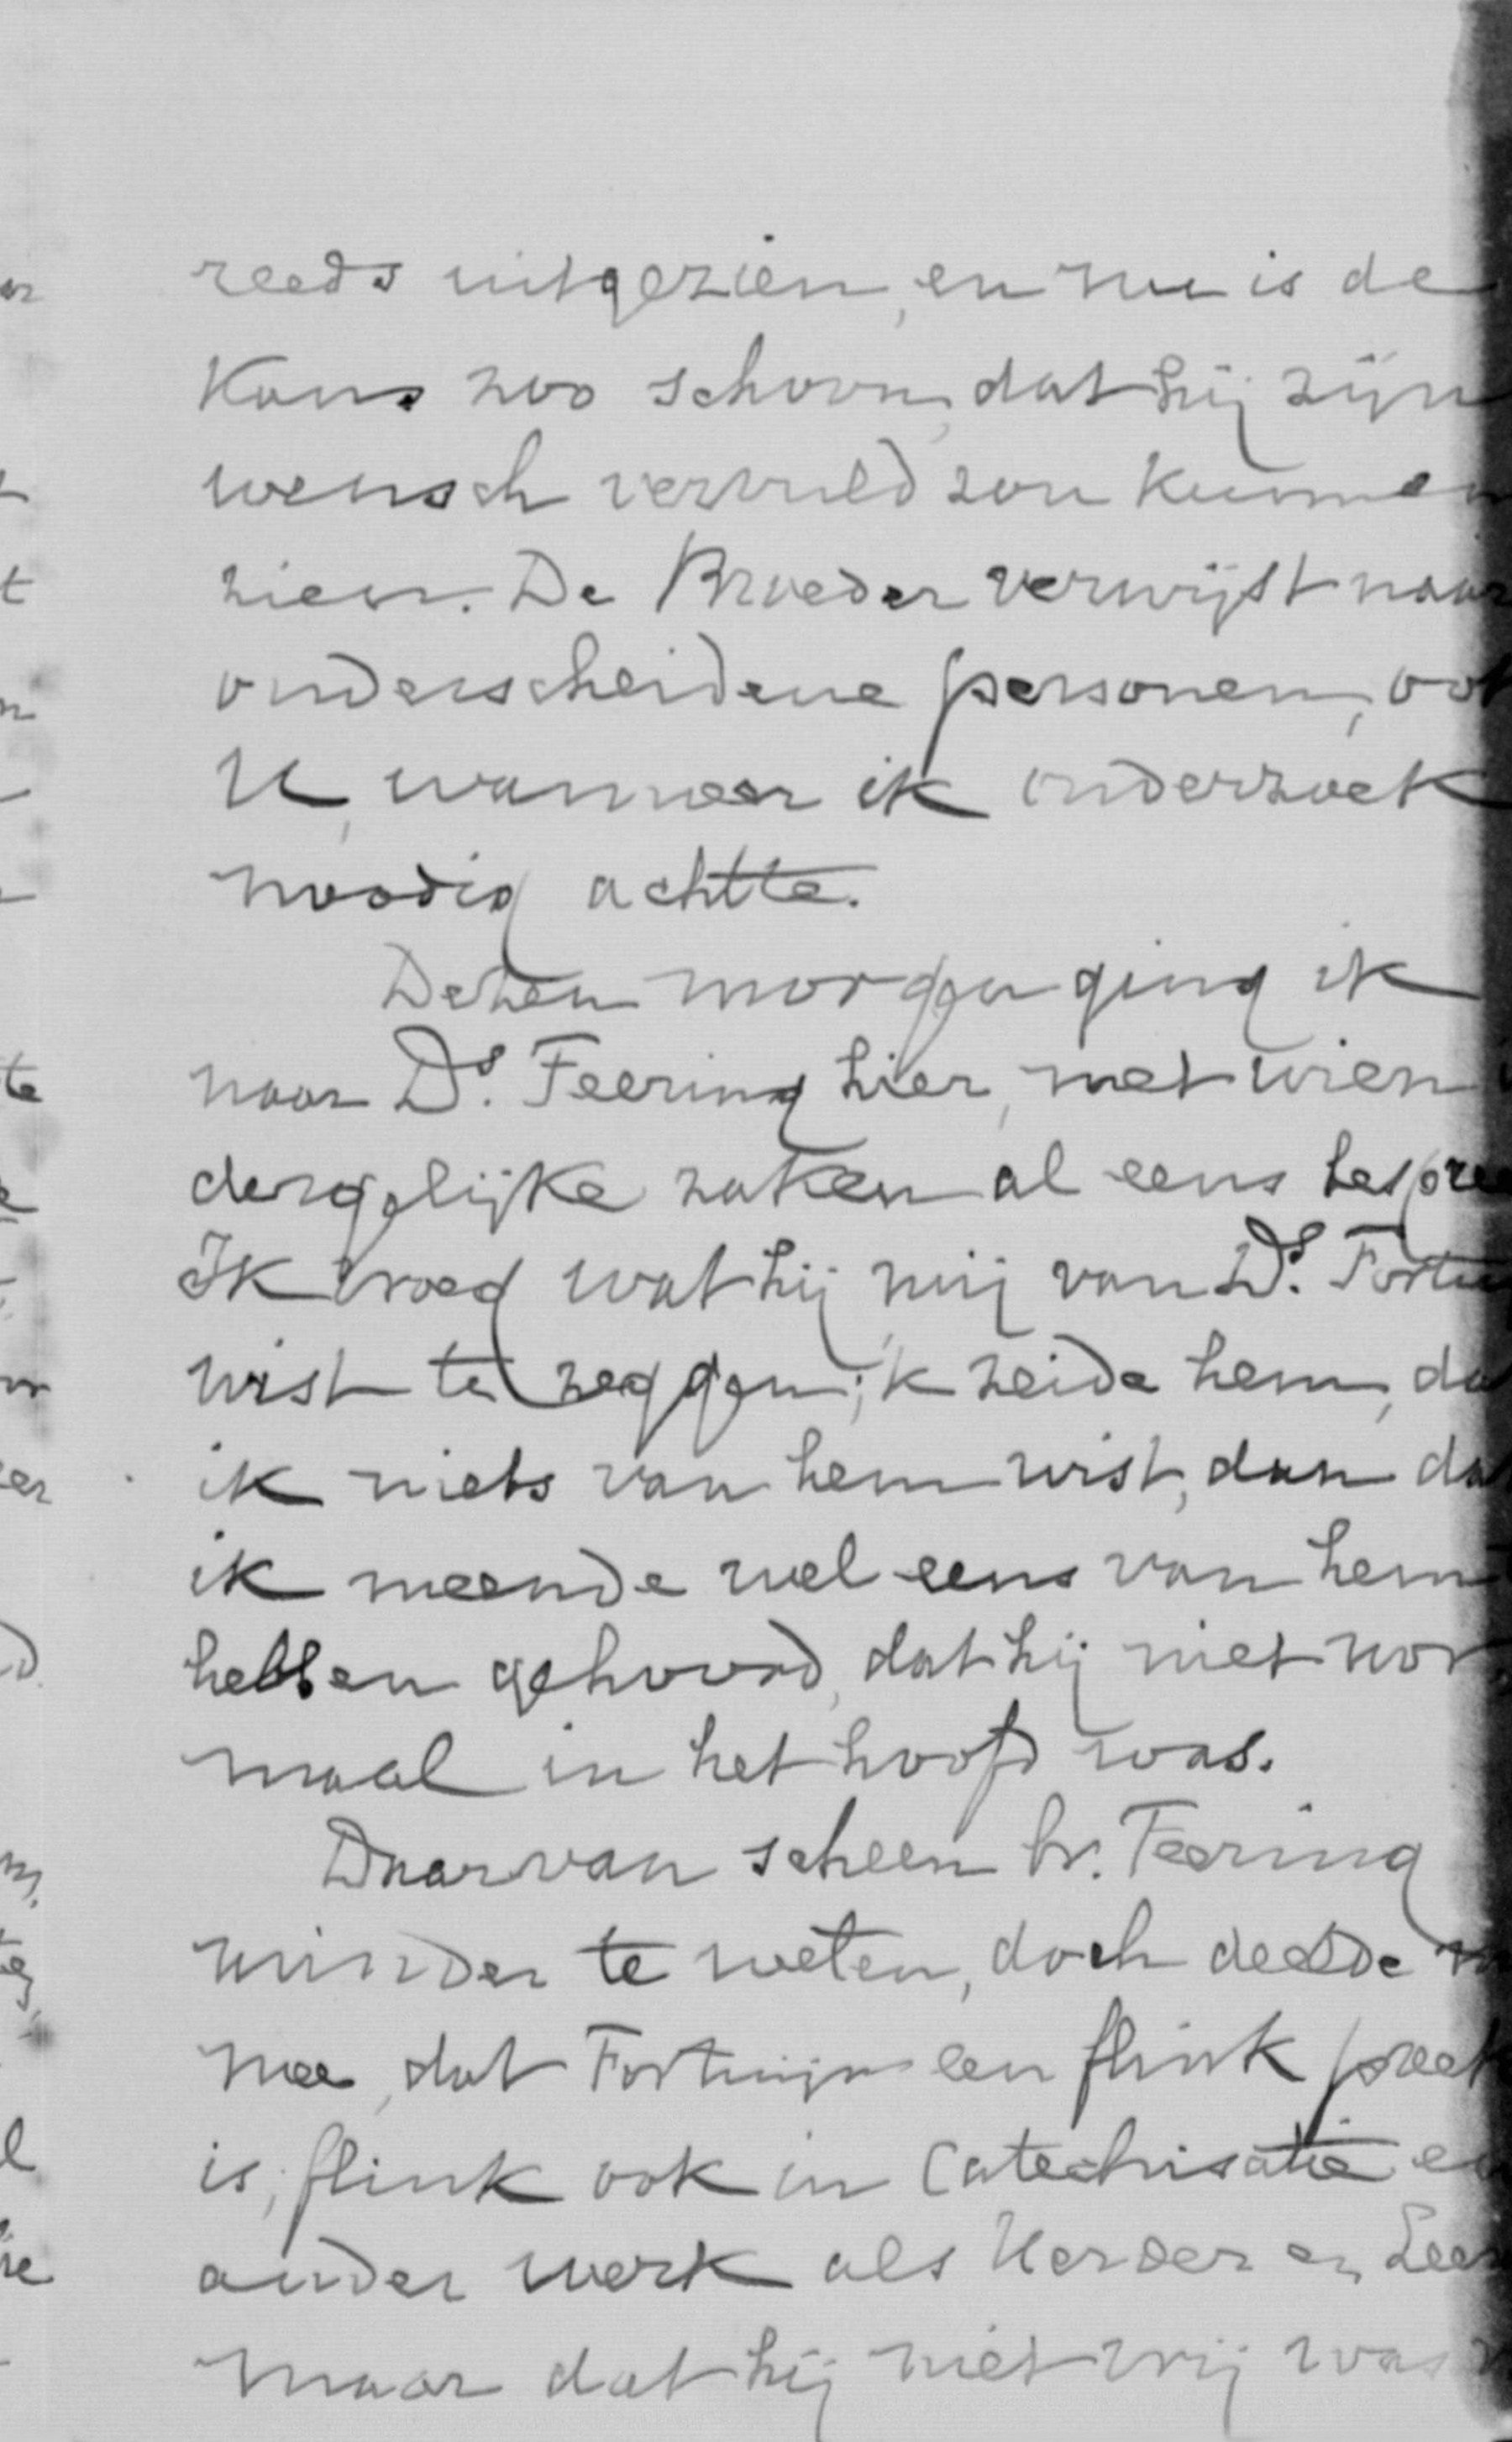 reeds uitgezien, en nu is de
Kans zoo schoon, dat hij zijn
wensch vervuld zou kunnen
zien. De Broeder verwijst naar
onderscheidene personen, ook
U, wanneer ik onderzoek
noodig achtte.
Dezen morgen ging ik
naar Ds. Feering hier, met wien
dergelijke zaken al eens bespre
Ik vroeg wat hij mij van Ds. Fortu
wist te zeggen; ik zeide hem, da
ik niets van hem wist, dan dat
ik meende wel eens van hem
hebben gehoord, dat hij niet nor
maal in het hoofd was.
Daarvan scheen br. Feering
minder te weten, doch deelde
mee, dat Fortuijn een flink preek
is, flink ook in Catechisatie en
ander werk als Herder en Leer
maar dat hij niet vrij was